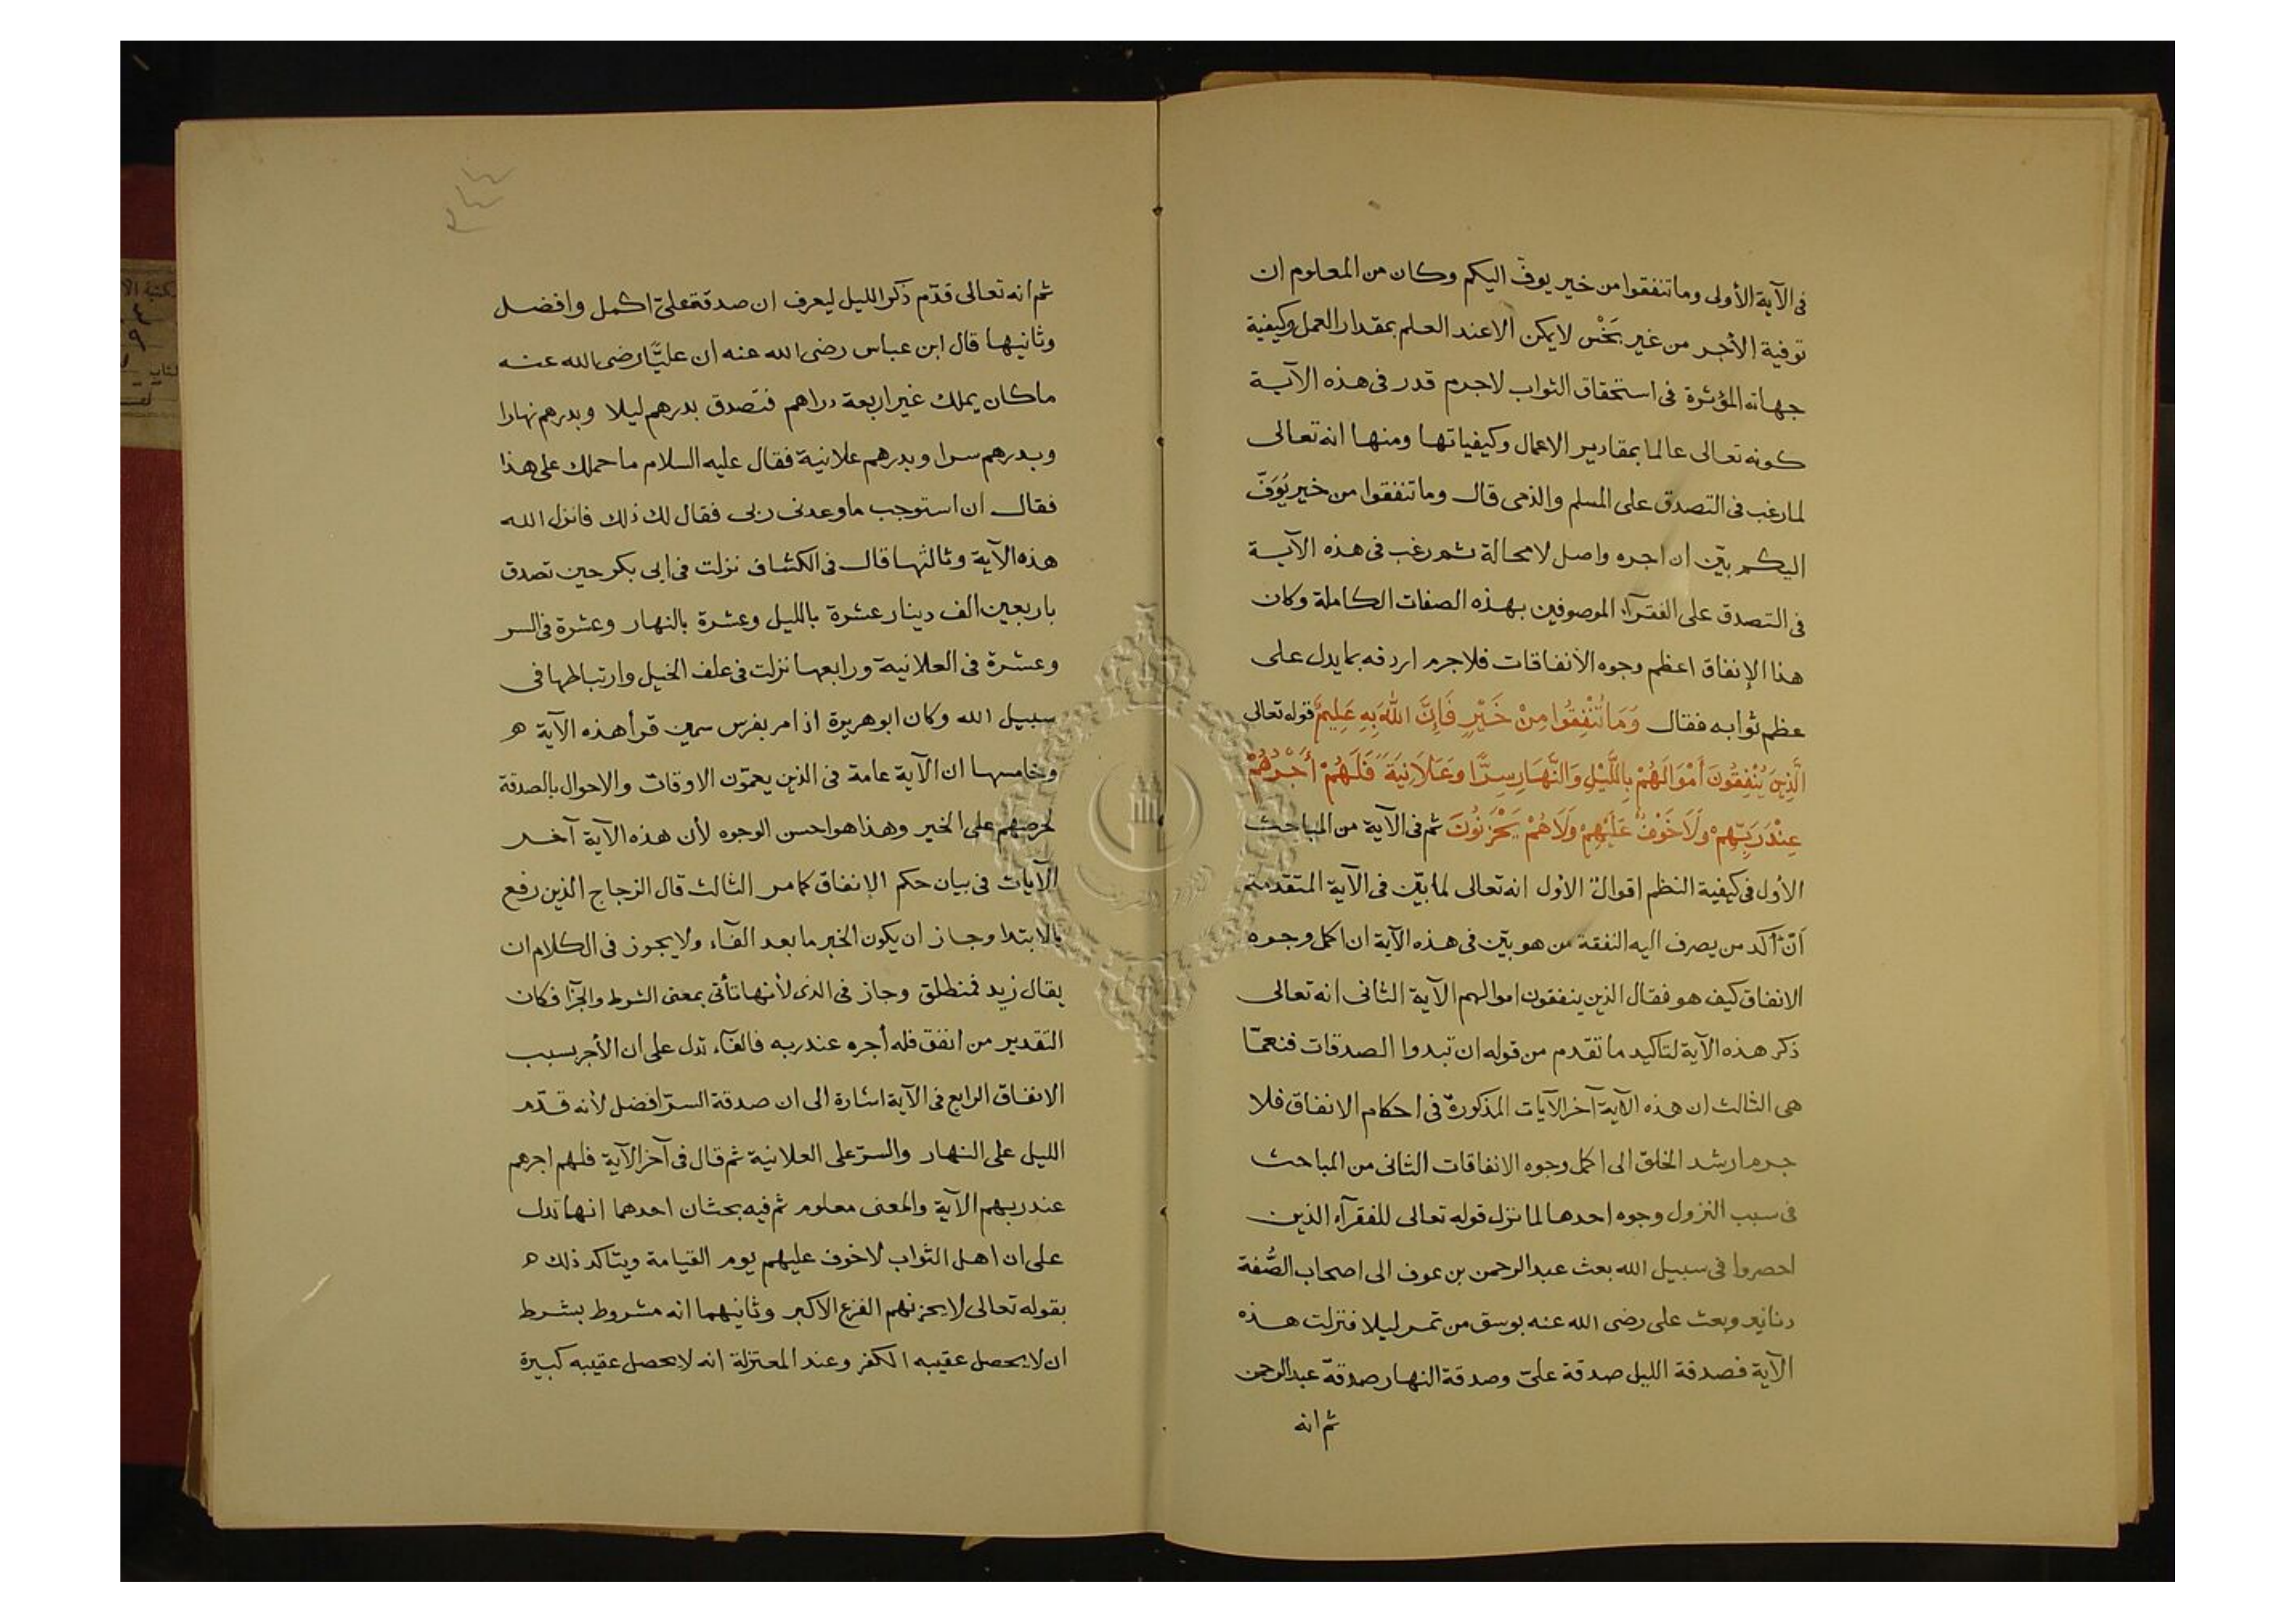 فى الآية الأولى وما تنفقوا من خير يوفّ اليكم وكان من المعلوم ان
توفية الأجر من غير بَخْس لا يمكن الا عند العلم بمقدار العمل وكيفية
جهاته المؤثرة فى استحقاق الثواب لا جرم قدر فى هذه الآية
كونه تعالى عالما بمقادير الاعمال وكيفياتها ومنها انه تعالى
لما رغب فى التصدق على المسلم والذمى قال وما تنفقوا من خير يُوَفّ
اليكم بيّن ان اجره واصل لا محالة ثم رغب فى هذه الآية
فى التصدق على الفقرآء الموصوفين بهذه الصفات الكاملة وكان
هذا الإنفاق اعظم وجوه الانفاقات فلا جرم اردفه بما يدل على
عظم ثوابه فقال وَمَا تُنْفِقُوا مِنْ خَيْرٍ فَإِنَّ اللهَ بِهِ عَلِيمٌ قوله تعالى
الَّذِينَ يُنْفِقُونَ أَمْوَالَهُمْ بِاللَّيْلِ وَالنَّهَارِ سِرًّا وَعَلَانِيَةً فَلَهُمْ أَجْرُهُمْ
عِنْدَ رَبِّهِمْ وَلَا خَوْفٌ عَلَيْهِمْ وَلَا هُمْ يَحْزَنُونَ ثم فى الآية من المباحث
الأول فى كيفية النظم اقوال الأول انه تعالى لما بيّن فى الآية المتقدمة
أنّ آكد من يصرف اليه النفقة من هو بيّن فى هذه الآية ان اكمل وجوه
الانفاق كيف هو فقال الذين ينفقون اموالهم الآية الثانى انه تعالى
ذكر هذه الآية لتاكيد ما تقدم من قوله ان تبدوا الصدقات فنعمّا
هى الثالث ان هذه الآية آخر الآيات المذكورة فى احكام الانفاق فلا
جرم ارشد الخلق الى اكمل وجوه الانفاقات الثانى من المباحث
فى سبب النزول وجوه احدها لما نزل قوله تعالى للفقرآء الذين
احصروا فى سبيل الله بعث عبد الرحمن بن عوف الى اصحاب الصُّفة
دنانير وبعث على رضى الله عنه بوسق من تمر ليلا فنزلت هذه
الآية فصدقة الليل صدقة علىّ وصدقة النهار صدقة عبد الرحمن
ثم انه
ثم انه تعالى قدّم ذكر الليل ليعرف ان صدقة علىّ اكمل وافضل
وثانيها قال ابن عباس رضى الله عنه ان عليًّا رضى الله عنه
ما كان يملك غير اربعة دراهم فتصدق بدرهم ليلا وبدرهم نهارا
وبدرهم سرا وبدرهم علانية فقال عليه السلام ما حملك على هذا
فقال ان استوجب ما وعدنى ربى فقال لك ذلك فانزل الله
هذه الآية وثالثها قال فى الكشاف نزلت فى ابى بكر حين تصدق
باربعين الف دينار عشرة بالليل وعشرة بالنهار وعشرة فى السر
وعشرة فى العلانية ورابعها نزلت فى علف الخيل وارتباطها فى
سبيل الله وكان ابو هريرة اذا مر بفرس سمين قرأ هذه الآية ه
وخامسها ان الآية عامة فى الذين يعمّون الاوقات والاحوال بالصدقة
لحرصهم على الخير وهذا هو احسن الوجوه لأن هذه الآية آخر
الآيات فى بيان حكم الإنفاق كما مر الثالث قال الزجاج الذين رفع
بالابتدا وجاز ان يكون الخبر ما بعد الفآء ولا يجوز فى الكلام ان
يقال زيد فمنطلق وجاز فى الذى لأنها تأتى بمعنى الشرط والجزآ فكان
التقدير من انفق فله أجره عند ربه فالفآء تدل على ان الأجر بسبب
الانفاق الرابع فى الآية اشارة الى ان صدقة السرّ افضل لأنه قدّم
الليل على النهار والسرّ على العلانية ثم قال فى آخر الآية فلهم اجرهم
عند ربهم الآية والمعنى معلوم ثم فيه بحثان احدهما انها تدل
على ان اهل الثواب لا خوف عليهم يوم القيامة ويتاكد ذلك ه
بقوله تعالى لا يحزنهم الفزع الاكبر وثانيهما انه مشروط بشرط
ان لا يحصل عقيبه الكفر وعند المعتزلة انه لا يحصل عقيبه كبيرة